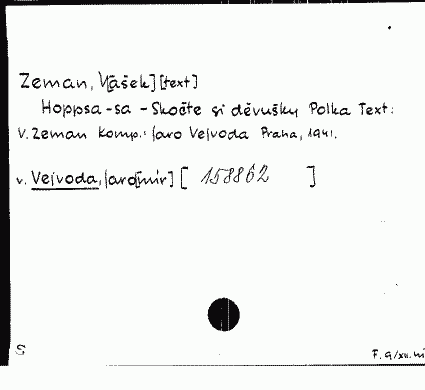 Zeman, V[ašek] [text]
Hoppsa-sa - Skočte si děvušky Polka Text:
V. Zeman Komp.: Jaro Vejvoda Praha, 1941.
v. Vejvoda, Jaro[mír] [ 158862 ]
S